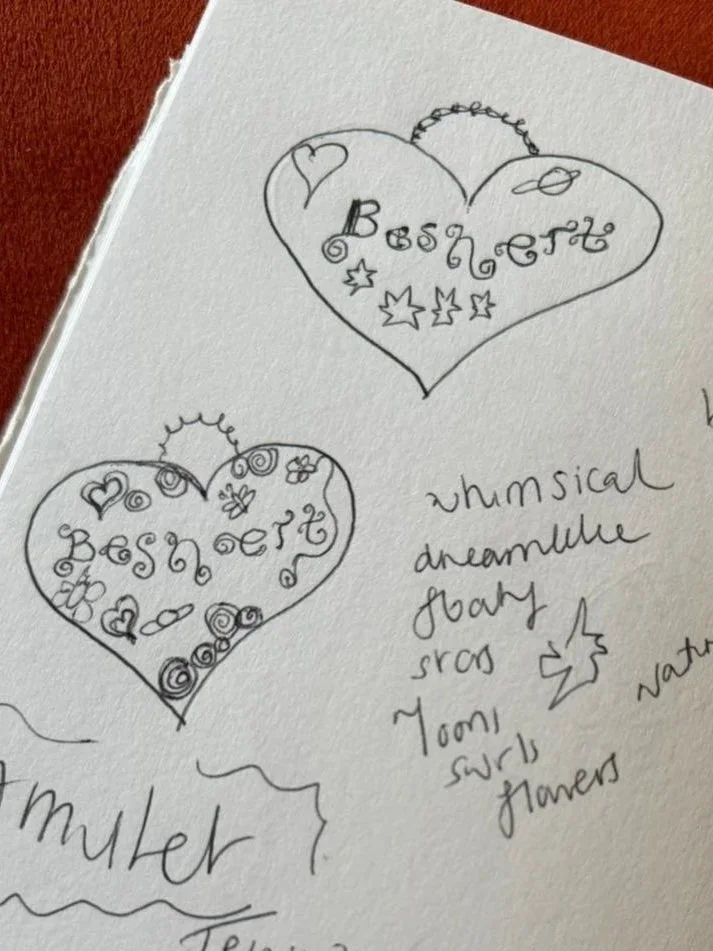 Beshert
Beshert
whimsical
dreamlike
floaty
stars
moons
swirls
flowers
Natur
Amulet